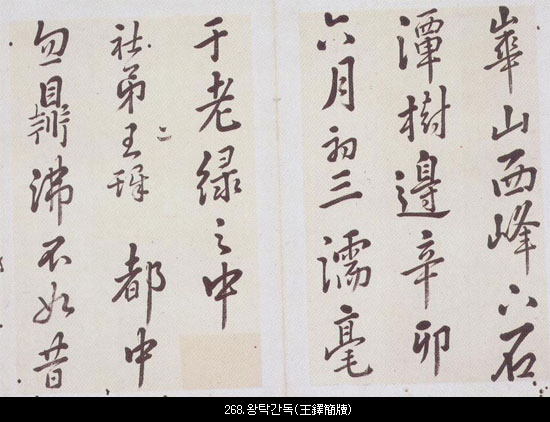 崋山西峰下石
潭樹邊辛卯
六月初三濡毫
于老緑之中
社弟王鐸 都中
沸不如昔
268.왕탁간독(王鐸簡牘)